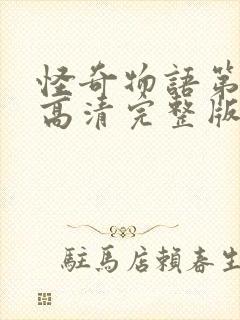 怪奇物語第
高清完整版
駐馬店賴春生